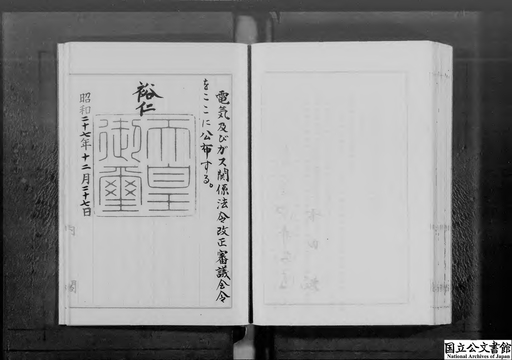 電気及びガス関係法令改正審議会令
をここに公布する。
裕仁
天皇御璽
昭和二十七年十二月二十七日
内閣
国立公文書館
National Archives of Japan